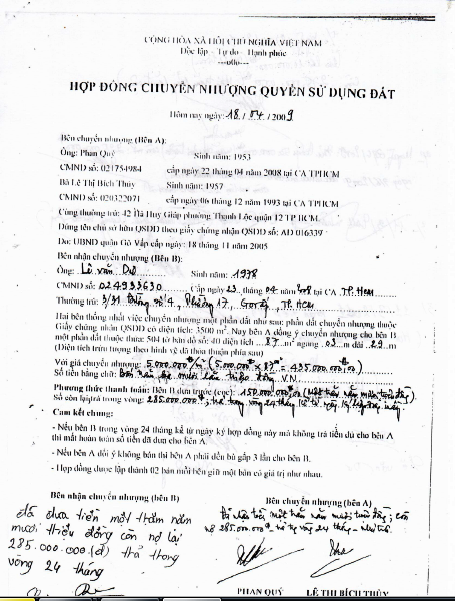 CỘNG HÒA XÃ HỘI CHỦ NGHĨA VIỆT NAM
Độc lập - Tự do - Hạnh phúc
---o0o---
HỢP ĐỒNG CHUYỂN NHƯỢNG QUYỀN SỬ DỤNG ĐẤT
Hôm nay ngày: 18 / 04 / 2009
Bên chuyển nhượng (Bên A):
Ông: Phan Quý Sinh năm: 1953
CMND số: 021754984 cấp ngày 22 tháng 04 năm 2008 tại CA TPHCM
Bà Lê Thị Bích Thủy Sinh năm: 1957
CMND số: 020322071 cấp ngày 06 tháng 12 năm 1993 tại CA TPHCM
Cùng thường trú: 42 Hà Huy Giáp phường Thạnh Lộc quận 12 TP HCM.
Đứng tên chủ sở hữu QSDĐ theo giấy chứng nhận QSDĐ số: AD 016339
Do: UBND quận Gò Vấp cấp ngày: 18 tháng 11 năm 2005
Bên nhận chuyển nhượng (Bên B):
Ông: Lê Văn Sinh năm: 1978
CMND số: 024933630 Cấp ngày 23 tháng 04 năm tại CA TP. HCM
Thường trú: 3/31 số 4, Phường 17, Gò Vấp, TP. HCM
Hai bên thống nhất việc chuyển nhượng một phần đất như sau: phần đất chuyển nhượng thuộc
Giấy chứng nhận QSDĐ có diện tích: 3500 m². Nay bên A đồng ý chuyển nhượng cho bên B
một phần đất thuộc thửa: 504 tờ bản đồ số: 40 diện tích ...87...m² ngang .03.m dài .29.m
(Diện tích trừu tượng theo hình vẽ đã thỏa thuận phía sau)
Với giá chuyển nhượng: 5.000.000đ/m² (5.000.000đ x 87m² = 435.000.000đ)
Số tiền bằng chữ: Bốn trăm ba mươi lăm triệu đồng V.N
Phương thức thanh toán: Bên B đưa trước (cọc): 150.000.000 (Một trăm năm mươi triệu đồng)
Số còn lại trong vòng: 285.000.000đ, trả trong vòng 24 tháng kể từ ngày ký hợp đồng này.
- Cam kết chung:
- Nếu bên B trong vòng 24 tháng kể từ ngày ký hợp đồng này mà không trả tiền đủ cho bên A
thì mất hoàn toàn số tiền đã đưa cho bên A.
- Nếu bên A đổi ý không bán thì bên A phải đền bù gấp 3 lần cho bên B.
- Hợp đồng được lập thành 02 bản mỗi bên giữ một bản có giá trị như nhau.
Bên nhận chuyển nhượng (bên B) Bên chuyển nhượng (bên A)
đã đưa tiền một trăm năm
mươi triệu đồng còn nợ lại
285.000.000 (đ) trả trong
vòng 24 tháng
Đã nhận tiền một trăm năm mươi triệu đồng, còn
nợ 285.000.000đ trả vòng 24 tháng
PHAN QUÝ LÊ THỊ BÍCH THỦY